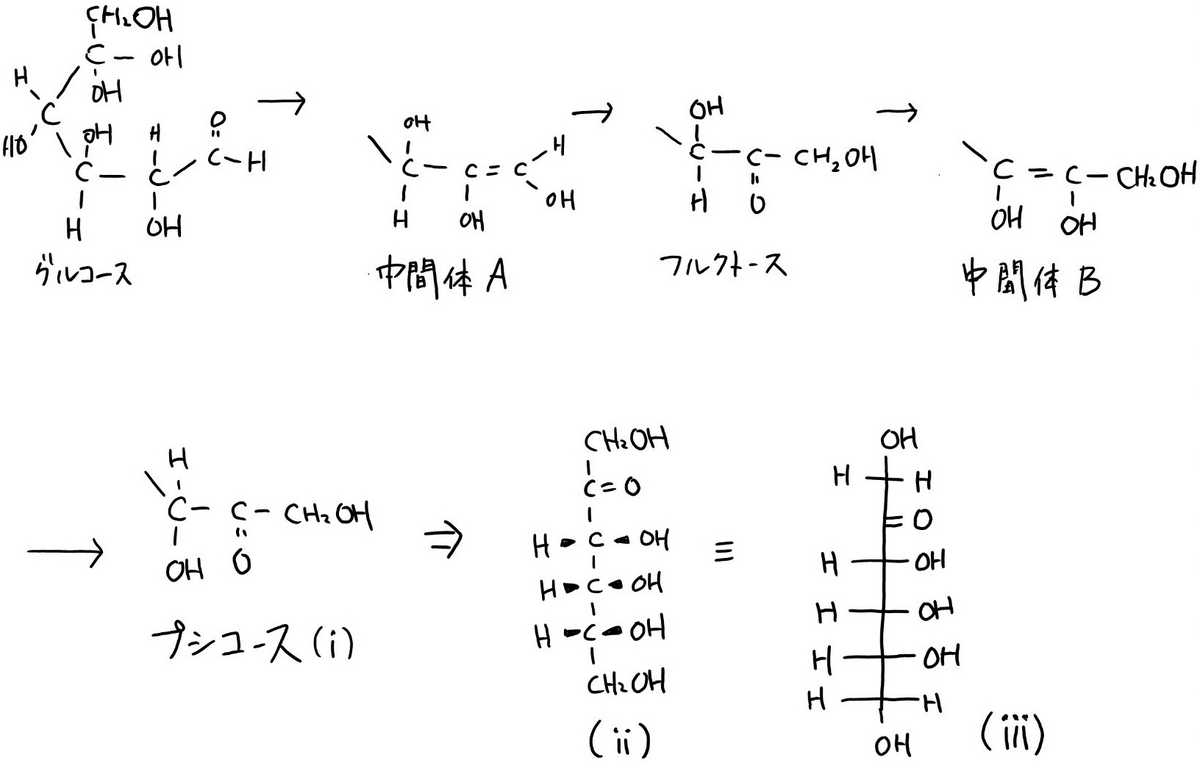 CH₂OH
C - OH
H OH
C
HO OH H O
C - C C - H
H OH
グルコース
→
OH H
C - C = C
H OH OH
中間体 A
→
OH
C - C - CH₂OH
H O
フルクトース
→
C = C - CH₂OH
OH OH
中間体 B
→
H
C - C - CH₂OH
OH O
プシコース (i)
⇒
CH₂OH
C = O
H C OH
H C OH
H C OH
CH₂OH
(ii)
≡
OH
H H
= O
H OH
H OH
H OH
H H
OH
(iii)